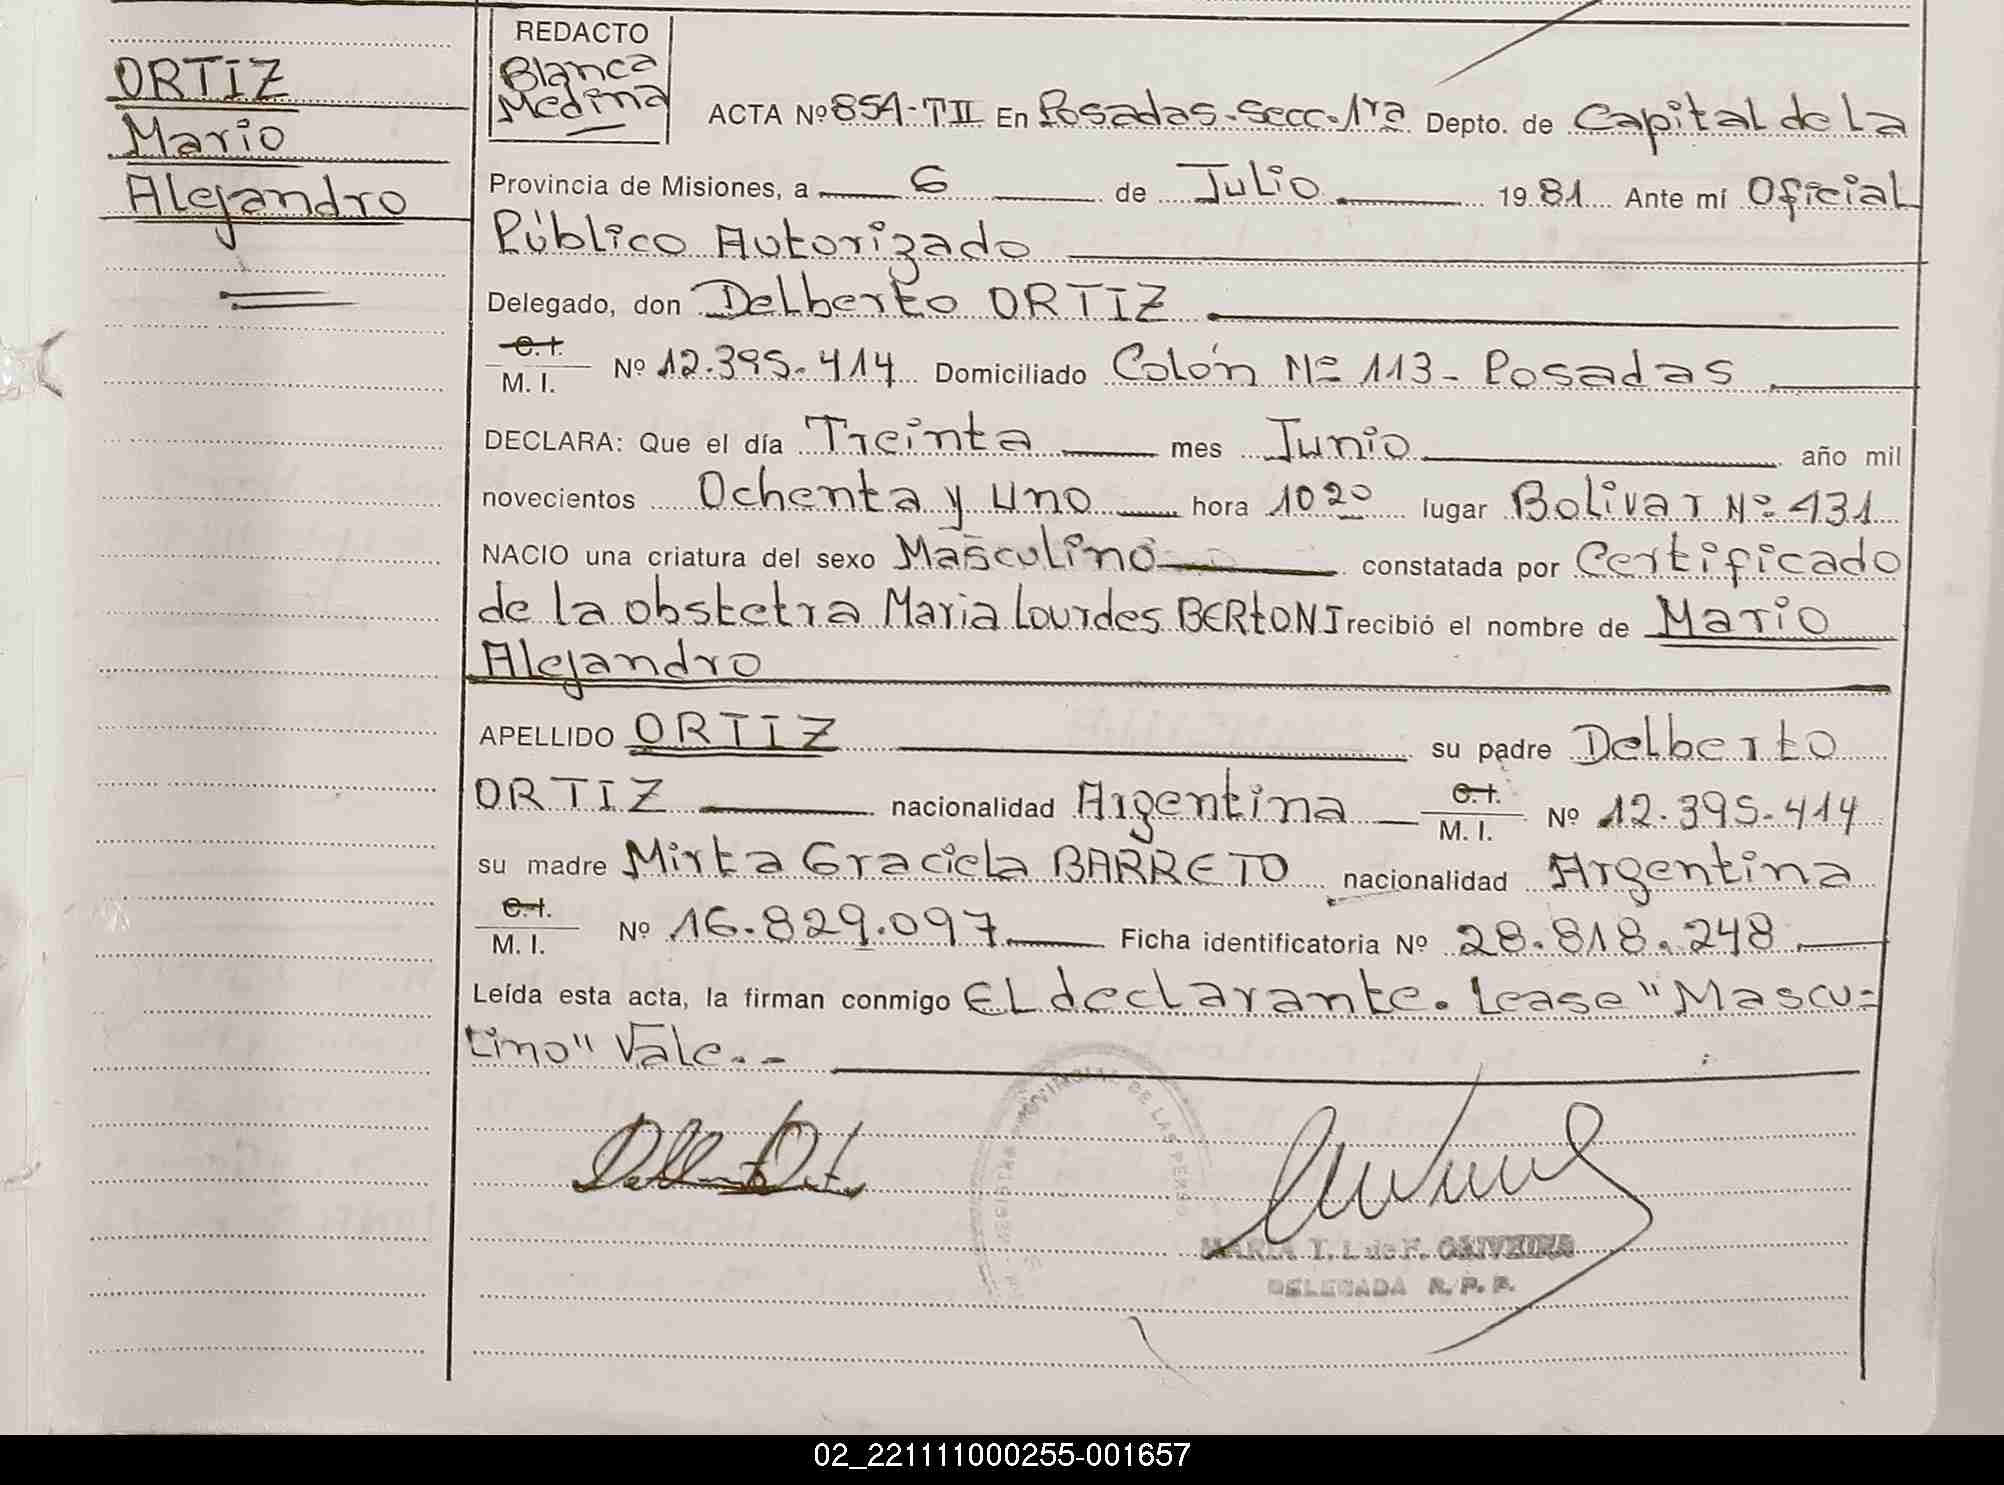 ORTIZ
Mario
Alejandro
REDACTO
Blanca
Medina
ACTA Nº 854-TII En Posadas-Secc.1ra Depto. de Capital de la
Provincia de Misiones, a 6 de Julio 1981 Ante mí Oficial
Público Autorizado
Delegado, don Delberto ORTIZ
C.I.
M. I. Nº 12.395.414 Domiciliado Colón Nº 113 - Posadas
DECLARA: Que el día Treinta mes Junio año mil
novecientos Ochenta y uno hora 10 20 lugar Bolivar Nº 431
NACIO una criatura del sexo Masculino constatada por Certificado
de la obstetra Maria Lourdes BERTONI recibió el nombre de Mario
Alejandro
APELLIDO ORTIZ su padre Delberto
ORTIZ nacionalidad Argentina C.I. M. I. Nº 12.395.414
su madre Mirta Graciela BARRETO nacionalidad Argentina
C.I.
M. I. Nº 16.829.097 Ficha identificatoria Nº 28.818.248
Leída esta acta, la firman conmigo EL declarante. Lease "Mascu=
lino" Vale.-
PROVINCIAL DE LAS PERSO
MARIA T. L. de F. OLIVEIRA
DELEGADA R. P. P.
02_221111000255-001657